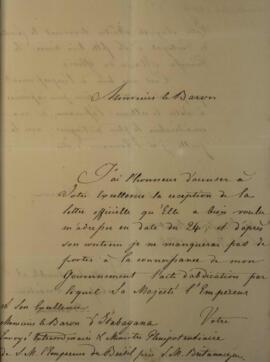 Monsieur le Baron
J'ai l'honneur d'accuser à
Votre Excellence la réception de la
lettre officielle qu'Elle a bien voulu
m'adresser en date du 24; et d'après
son contenu je ne manquerai pas de
porter à la connaissance de mon
Gouvernement l'acte d'abdication par
lequel Sa Majesté l'Empereur
Votre
à Son Excellence
Monsieur le Baron d'Itabayana
Envoyé Extraordinaire & Ministre Plénipotentiaire
de S.M. l'Empereur du Brésil près S.M. Britannique